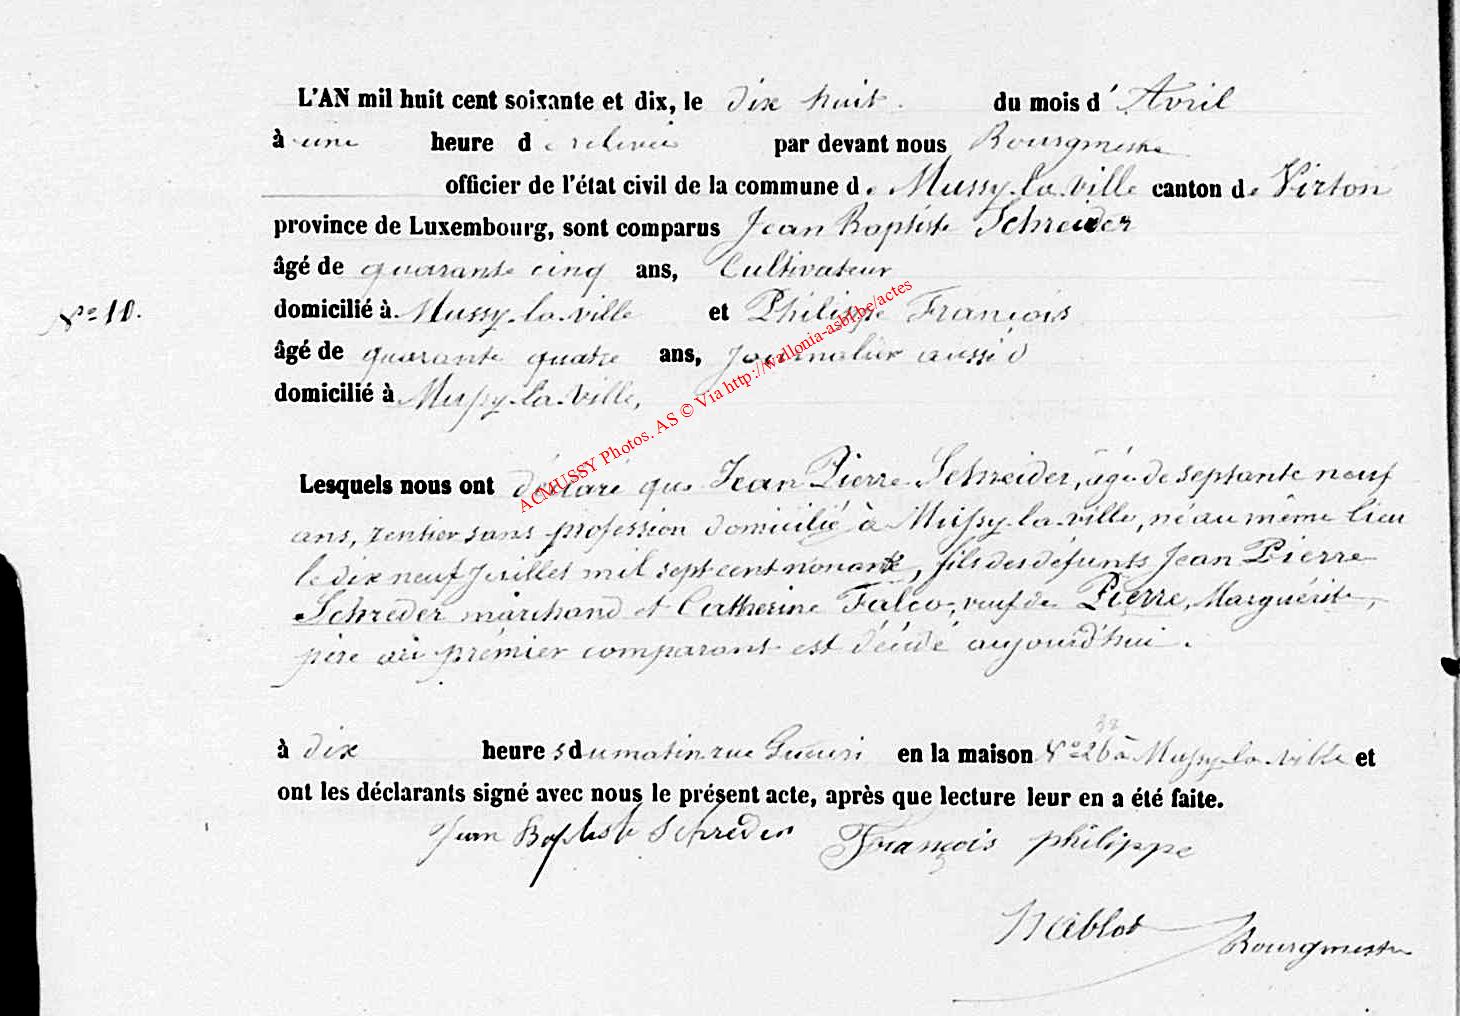 L'AN mil huit cent soixante et dix, le dix huit du mois d'Avril
à une heure de relevée par devant nous Bourgmestre
officier de l'état civil de la commune de Mussy-la-ville canton de Virton
province de Luxembourg, sont comparus Jean Baptiste Schreider
âgé de quarante cinq ans, Cultivateur
N° 10. domicilié à Mussy-la-ville et Philippe François
âgé de quarante quatre ans, journalier aussi
domicilié à Mussy-la-Ville,
ACMUSSY Photos. AS © Via http://wallonia-asbl.be/actes
Lesquels nous ont déclaré que Jean Pierre Schreider, âgé de septante neuf
ans, rentier sans profession domicilié à Mussy-la-ville, né au même lieu
le dix neuf Juillet mil sept cent nonante, fils des défunts Jean Pierre
Schreder marchand et Catherine Falco, veuf de Pierre, Marguérite,
père au prémier comparant est décédé aujourd'hui.
à dix heures du matin rue en la maison N° 26 à Mussy-la-ville et
ont les déclarants signé avec nous le présent acte, après que lecture leur en a été faite.
Jean Baptiste Schreder François philippe
Nablot Bourgmestre